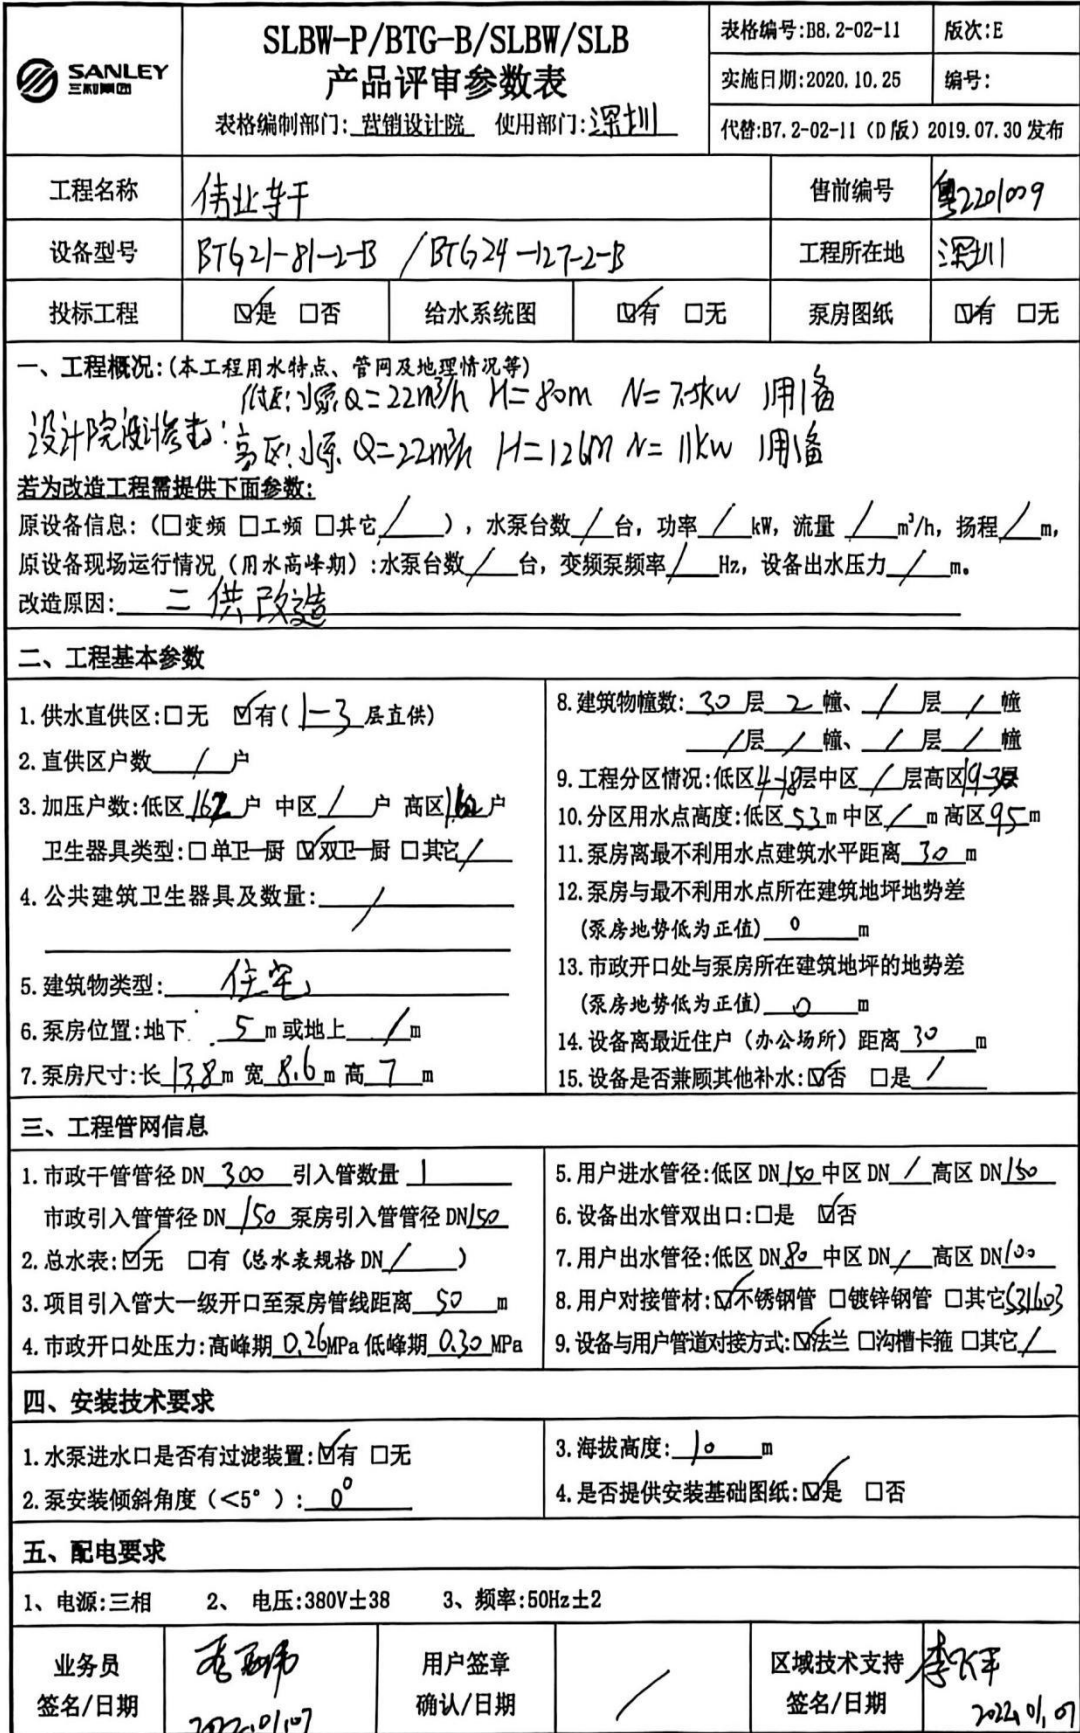 SANLEY
三利集团
SLBW-P/BTG-B/SLBW/SLB
产品评审参数表
表格编制部门: 营销设计院 使用部门: 深圳
表格编号:B8.2-02-11 版次:E
实施日期:2020.10.25 编号:
代替:B7.2-02-11（D版）2019.07.30 发布
工程名称 伟业轩 售前编号 粤2201009
设备型号 BTG21-81-2-B /BTG24-127-2-B 工程所在地 深圳
投标工程 ☑是 □否 给水系统图 ☑有 □无 泵房图纸 ☑有 □无
一、工程概况:(本工程用水特点、管网及地理情况等)
低区:水泵Q=22m³/h H=80m N=7.5kw 1用1备
设计院设计参数:
高区:水泵 Q=22m³/h H=126m N=11kw 1用1备
若为改造工程需提供下面参数:
原设备信息:（□变频 □工频 □其它 / ），水泵台数 / 台，功率 / kW，流量 / m³/h，扬程 / m，
原设备现场运行情况（用水高峰期）:水泵台数 / 台，变频泵频率 / Hz，设备出水压力 / m。
改造原因: 二供改造
二、工程基本参数
1.供水直供区:□无 ☑有( 1-3 层直供)
2.直供区户数 / 户
3.加压户数:低区 162 户 中区 / 户 高区 162 户
卫生器具类型:□单卫一厨 ☑双卫一厨 □其它 /
4.公共建筑卫生器具及数量: /
5.建筑物类型: 住宅
6.泵房位置:地下 5 m或地上 / m
7.泵房尺寸:长 13.8 m 宽 8.6 m 高 7 m
8.建筑物幢数: 30 层 2 幢、 / 层 / 幢
/ 层 / 幢、 / 层 / 幢
9.工程分区情况:低区 4-18 层中区 / 层高区 19-30 层
10.分区用水点高度:低区 53 m 中区 / m 高区 95 m
11.泵房离最不利用水点建筑水平距离 30 m
12.泵房与最不利用水点所在建筑地坪地势差
(泵房地势低为正值) 0 m
13.市政开口处与泵房所在建筑地坪的地势差
(泵房地势低为正值) 0 m
14.设备离最近住户（办公场所）距离 30 m
15.设备是否兼顾其他补水:☑否 □是 /
三、工程管网信息
1.市政干管管径 DN 300 引入管数量 1
市政引入管管径 DN 150 泵房引入管管径 DN 150
2.总水表:☑无 □有 (总水表规格 DN / )
3.项目引入管大一级开口至泵房管线距离 50 m
4.市政开口处压力:高峰期 0.26 MPa 低峰期 0.30 MPa
5.用户进水管径:低区 DN 150 中区 DN / 高区 DN 150
6.设备出水管双出口:□是 ☑否
7.用户出水管径:低区 DN 80 中区 DN / 高区 DN 100
8.用户对接管材:☑不锈钢管 □镀锌钢管 □其它 S31603
9.设备与用户管道对接方式:☑法兰 □沟槽卡箍 □其它 /
四、安装技术要求
1.水泵进水口是否有过滤装置:☑有 □无
2.泵安装倾斜角度（<5°）: 0°
3.海拔高度: 10 m
4.是否提供安装基础图纸:☑是 □否
五、配电要求
1、电源:三相 2、 电压:380V±38 3、频率:50Hz±2
业务员 用户签章 区域技术支持
签名/日期 2022.01.07 确认/日期 / 签名/日期 2022.01.07